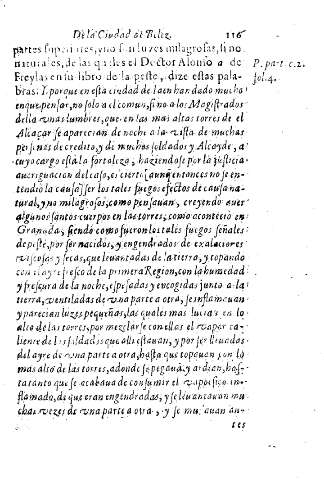 De la Ciudad de Velez. 116
partes superiores, y no son luzes milagrosas, si no
naturales, de las quales el Doctor Alonso de
Freylas en su libro de la peste, dize estas pala-
bras: Y porque en esta ciudad de Iaen han dado mucho
en que pensar, no solo al comun, sino a los Magistrados
de ella vnas lumbres, que en las mas altas torres de el
Alcaçar se aparecian de noche a la vista de muchas
personas de credito, y de muchos soldados y Alcayde, a
cuyo cargo està la fortaleza, haziendose por la justicia
aueriguacion del caso, es cierto [aunq̃ entonces no se en-
tendiò la causa] ser los tales fuegos efectos de causa na-
tural, y no milagrosos, como pensauan, creyendo auer
algunos santos cuerpos en las torres, como aconteciò en
Granada, siendo como fueron los tales fuegos señales
de peste, por ser nacidos, y engendrados de exalaciones
viscosas y secas, que leuantadas de la tierra, y topando
con el ayre fresco de la primera Region, con la humedad
y frescura de la noche, espesadas y encogidas junto a la
tierra, ventiladas de vna parte a otra, se inflamauan
y parecian luzes pequeñas, las quales mas lucian en lo
alto de las torres, por mezclarse con ellas el vapor ca-
liente de los soldados que alli estauan, y por ser lleuados
del ayre de vna parte a otra, hasta que topauan con lo
mas alto de las torres, adonde se pegauã, y ardian, has-
ta tanto que se acabaua de consumir el vaporoso in-
flamado, de que eran engendradas, y se leuantauan mu
chas vezes de vna parte a otra, y se mudauan an-
tes
P. part. c. 2.
fol. 4.